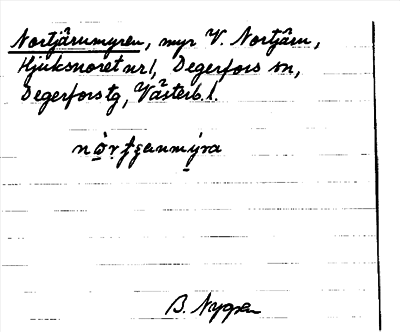 Nortjärnmyren, myr V. Nortjärn,
Hjuksnoret nr 1, Degerfors sn,
Degerfors tg, Västerb. l.
B. Nygren